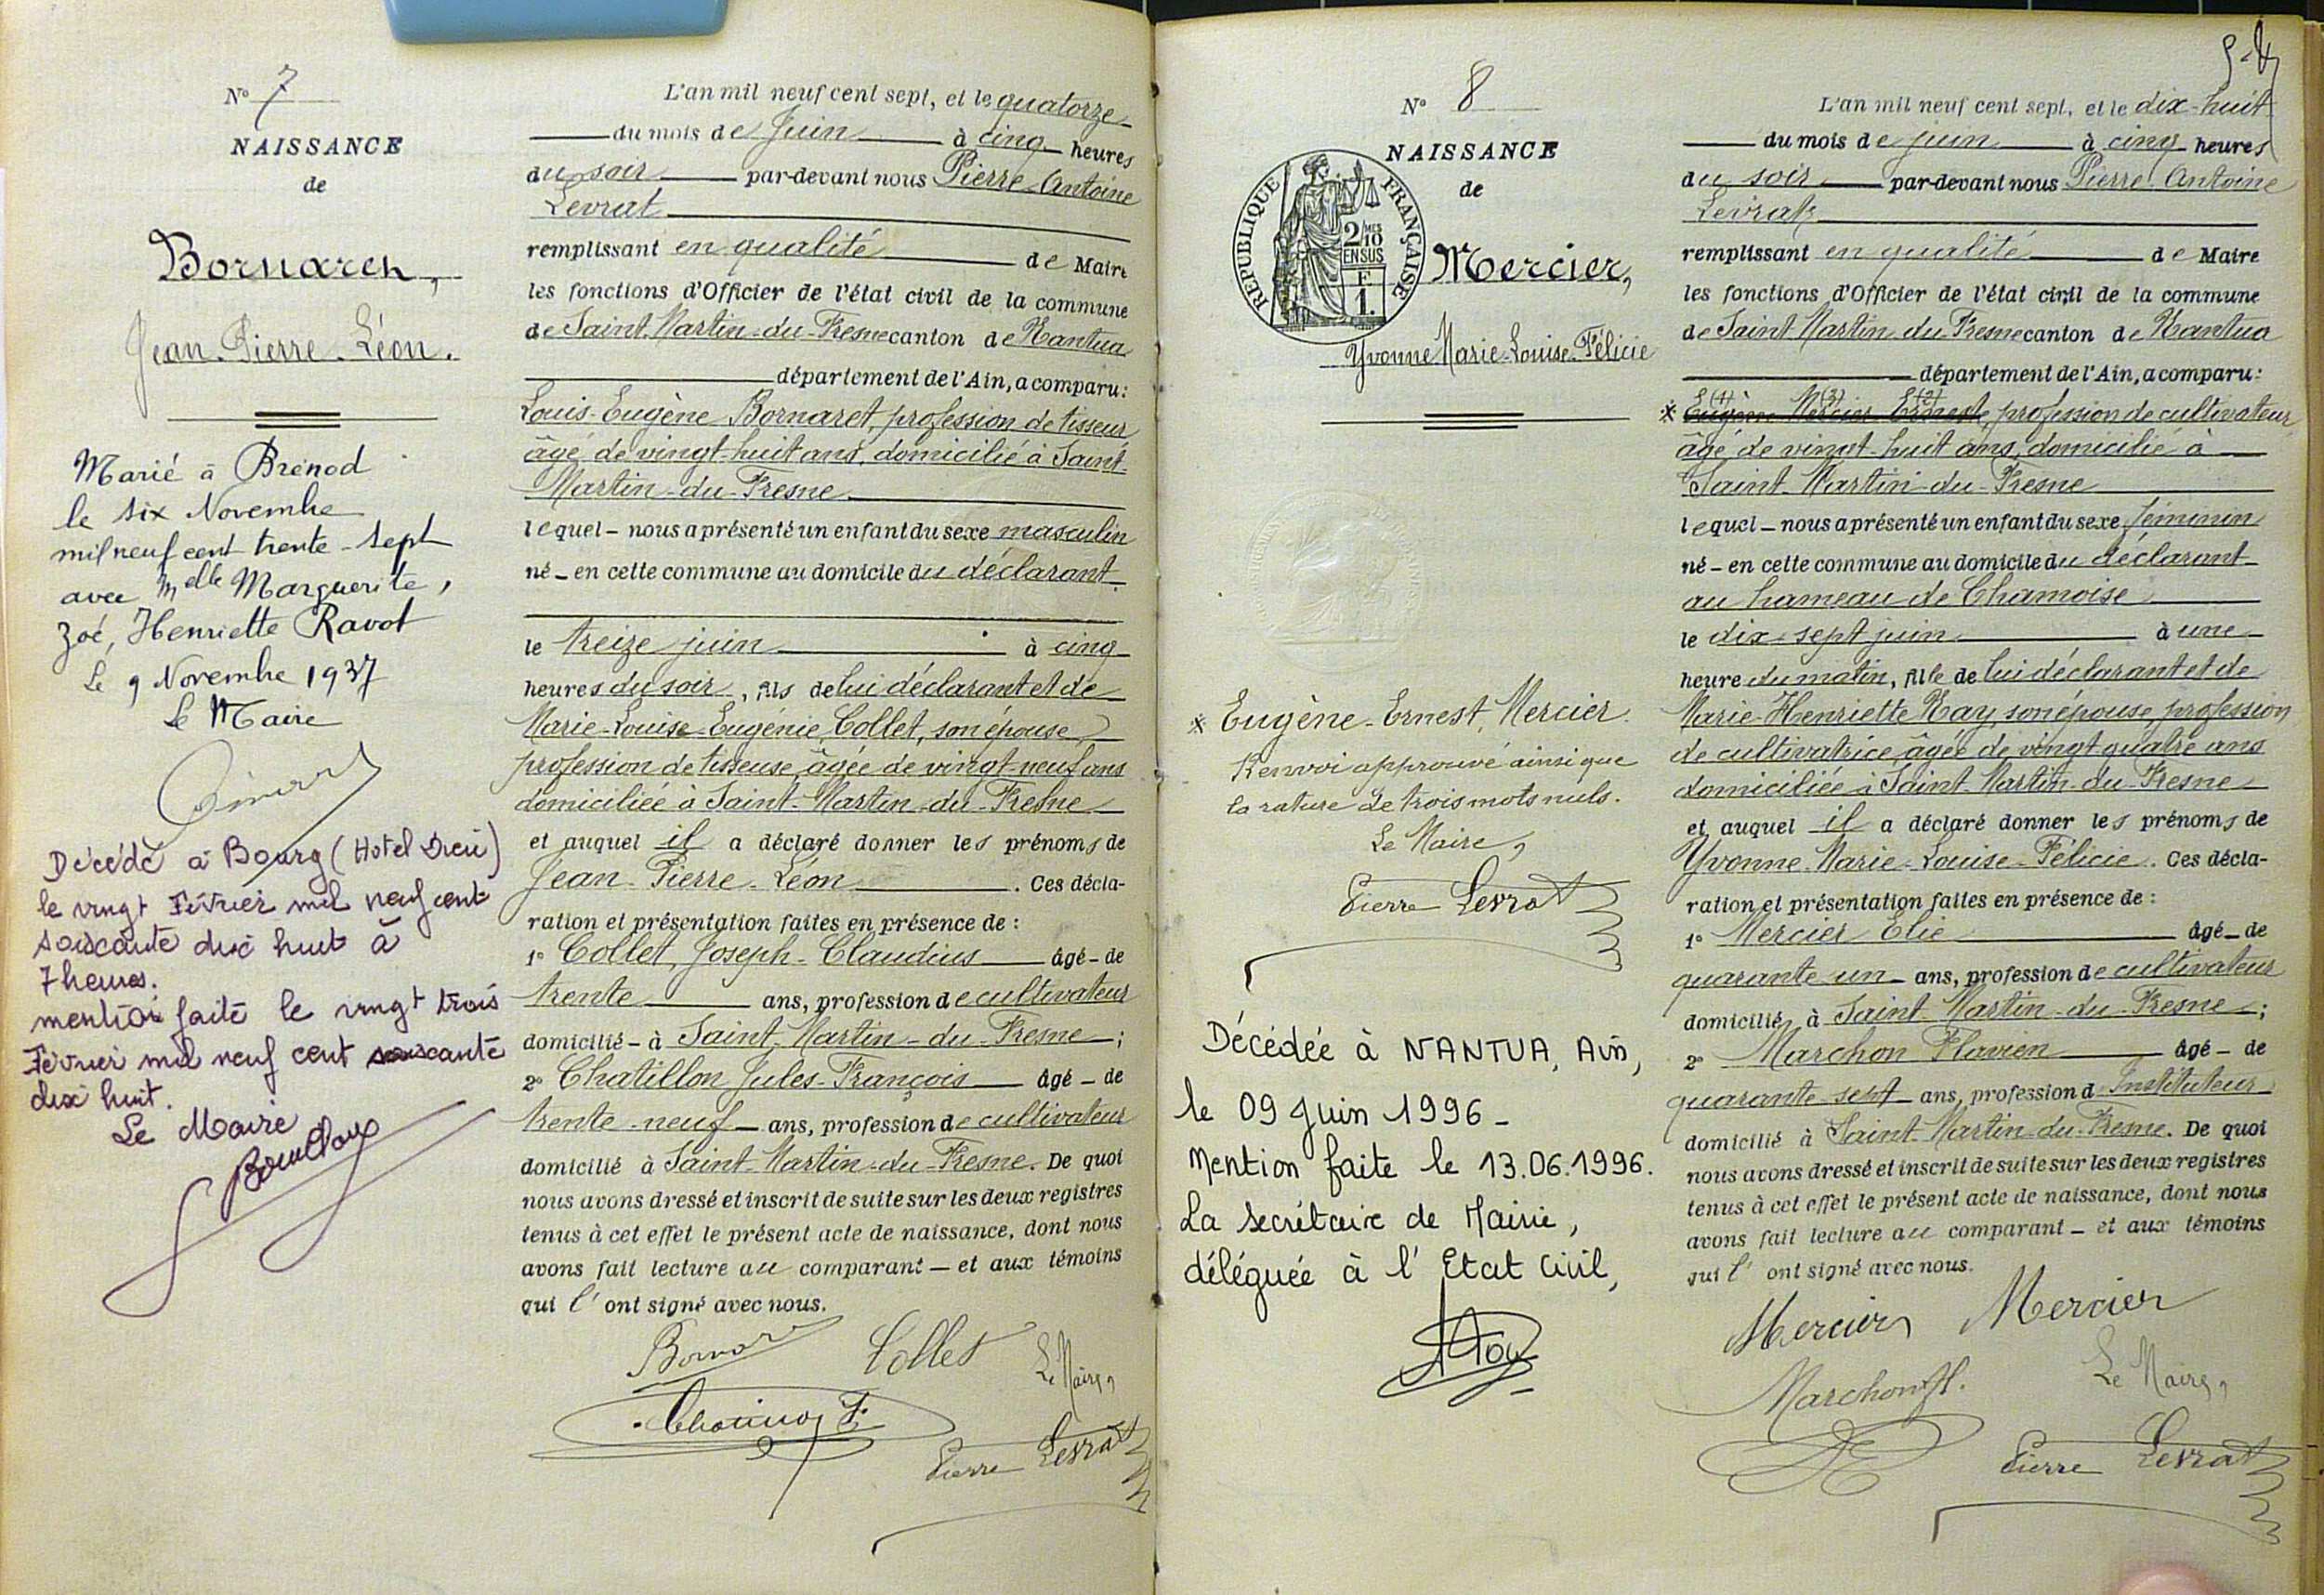 N° 7
NAISSANCE
de
Bornarel,
Jean-Pierre-Léon.
Marié à Brénod
le six Novembre
mil neuf cent trente-sept
avec Melle Marguerite,
Zoé, Henriette Ravot
Le 9 Novembre 1937
Le Maire
Décédé à Bourg (Hotel Dieu)
le vingt Février mil neuf cent
soixante dix huit à
7 heures.
mention faite le vingt trois
Février mil neuf cent soixante
dix huit.
Le Maire
L'an mil neuf cent sept, et le quatorze
du mois de Juin à cinq heures
du soir par-devant nous Pierre-Antoine
Levrat
remplissant en qualité de Maire
les fonctions d'Officier de l'état civil de la commune
de Saint-Martin-du-Fresne canton de Nantua
département de l'Ain, a comparu:
Louis-Eugène Bornaret, profession de tisseur
âgé de vingt-huit ans, domicilié à Saint-
Martin-du-Fresne
lequel - nous a présenté un enfant du sexe masculin
né - en cette commune au domicile du déclarant
le treize juin à cinq
heures du soir, fils de lui déclarant et de
Marie-Louise-Eugénie Collet, son épouse,
profession de tisseuse, âgée de vingt-neuf ans
domiciliée à Saint-Martin-du-Fresne
et auquel il a déclaré donner les prénoms de
Jean-Pierre-Léon. Ces décla-
ration et présentation faites en présence de :
1° Collet, Joseph-Claudius âgé - de
trente ans, profession de cultivateur
domicilié - à Saint-Martin-du-Fresne ;
2° Chatillon Jules-François âgé - de
trente-neuf ans, profession de cultivateur
domicilié à Saint-Martin-du-Fresne. De quoi
nous avons dressé et inscrit de suite sur les deux registres
tenus à cet effet le présent acte de naissance, dont nous
avons fait lecture au comparant - et aux témoins
qui l'ont signé avec nous.
Collet
Le Maire,
Pierre Levrat
N° 8
NAISSANCE
de
REPUBLIQUE FRANÇAISE
2/10 MES
EN SUS
F.
1.
Mercier,
Yvonne Marie-Louise-Félicie
* Eugène-Ernest, Mercier.
Renvoi approuvé ainsi que
la rature de trois mots nuls.
Le Maire,
Pierre Levrat
Décédée à NANTUA, Ain,
le 09 Juin 1996 -
Mention faite le 13.06.1996.
La Secrétaire de Mairie,
déléguée à l'Etat Civil,
L'an mil neuf cent sept, et le dix-huit
du mois de juin à cinq heures
du soir par-devant nous Pierre-Antoine
Levrat
remplissant en qualité de Maire
les fonctions d'Officier de l'état civil de la commune
de Saint-Martin-du-Fresne canton de Nantua
département de l'Ain, a comparu:
(1) (3) (2)
* Eugène Mercier Ernest, profession de cultivateur
âgé de vingt-huit ans, domicilié à
Saint-Martin-du-Fresne
lequel - nous a présenté un enfant du sexe féminin
né - en cette commune au domicile du déclarant
au hameau de Chamoise
le dix-sept juin à une
heure du matin, fille de lui déclarant et de
Marie-Henriette Nay, son épouse, profession
de cultivatrice, âgée de vingt quatre ans
domiciliée à Saint-Martin-du-Fresne
et auquel il a déclaré donner les prénoms de
Yvonne-Marie-Louise-Félicie. Ces décla-
ration et présentation faites en présence de :
1° Mercier Elie âgé - de
quarante un ans, profession de cultivateur
domicilié à Saint-Martin-du-Fresne ;
2° Marchon Flavien âgé - de
quarante sept ans, profession d'Instituteur
domicilié à Saint-Martin-du-Fresne. De quoi
nous avons dressé et inscrit de suite sur les deux registres
tenus à cet effet le présent acte de naissance, dont nous
avons fait lecture au comparant - et aux témoins
qui l'ont signé avec nous.
Mercier Mercier
Marchon fl.
Le Maire,
Pierre Levrat